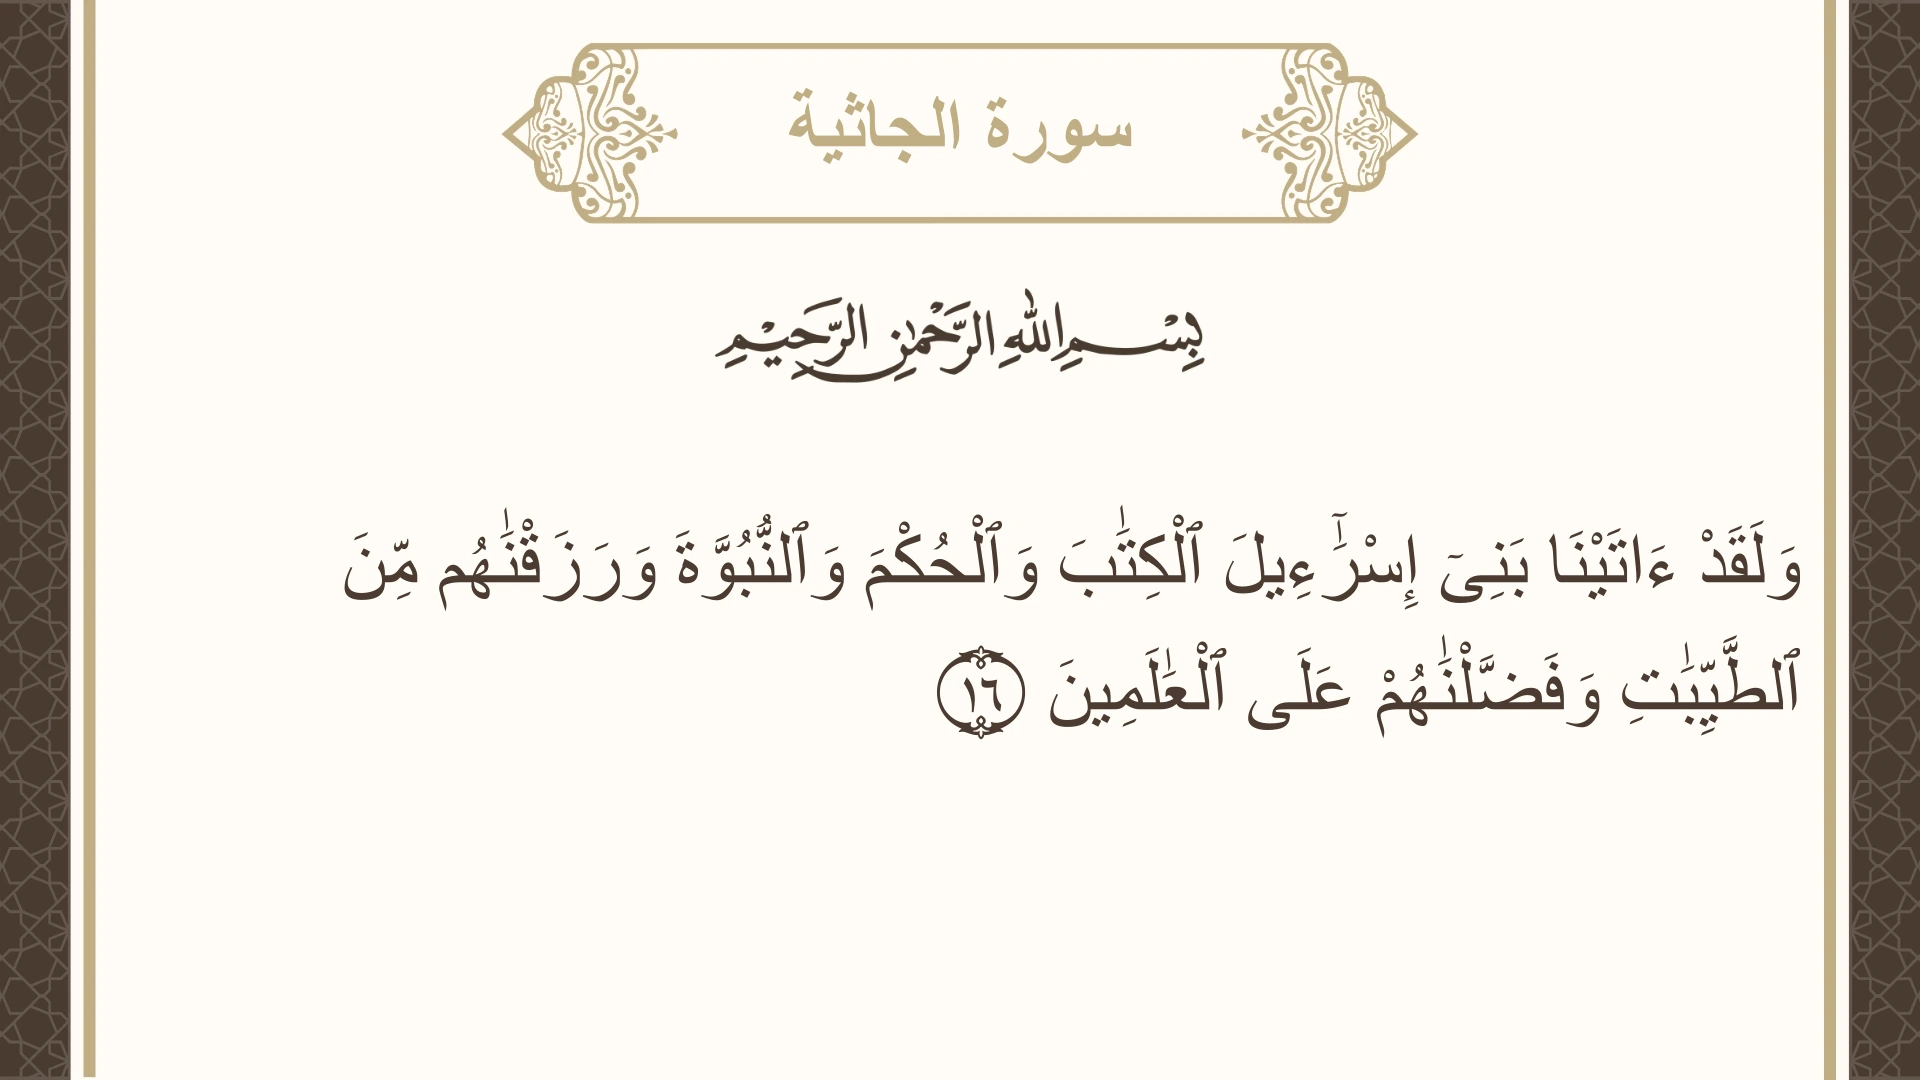 سورة الجاثية
بِسْمِ اللهِ الرَّحْمٰنِ الرَّحِيْمِ
وَلَقَدْ ءَاتَيْنَا بَنِىٓ إِسْرَٰٓءِيلَ ٱلْكِتَٰبَ وَٱلْحُكْمَ وَٱلنُّبُوَّةَ وَرَزَقْنَٰهُم مِّنَ
ٱلطَّيِّبَٰتِ وَفَضَّلْنَٰهُمْ عَلَى ٱلْعَٰلَمِينَ ١٦